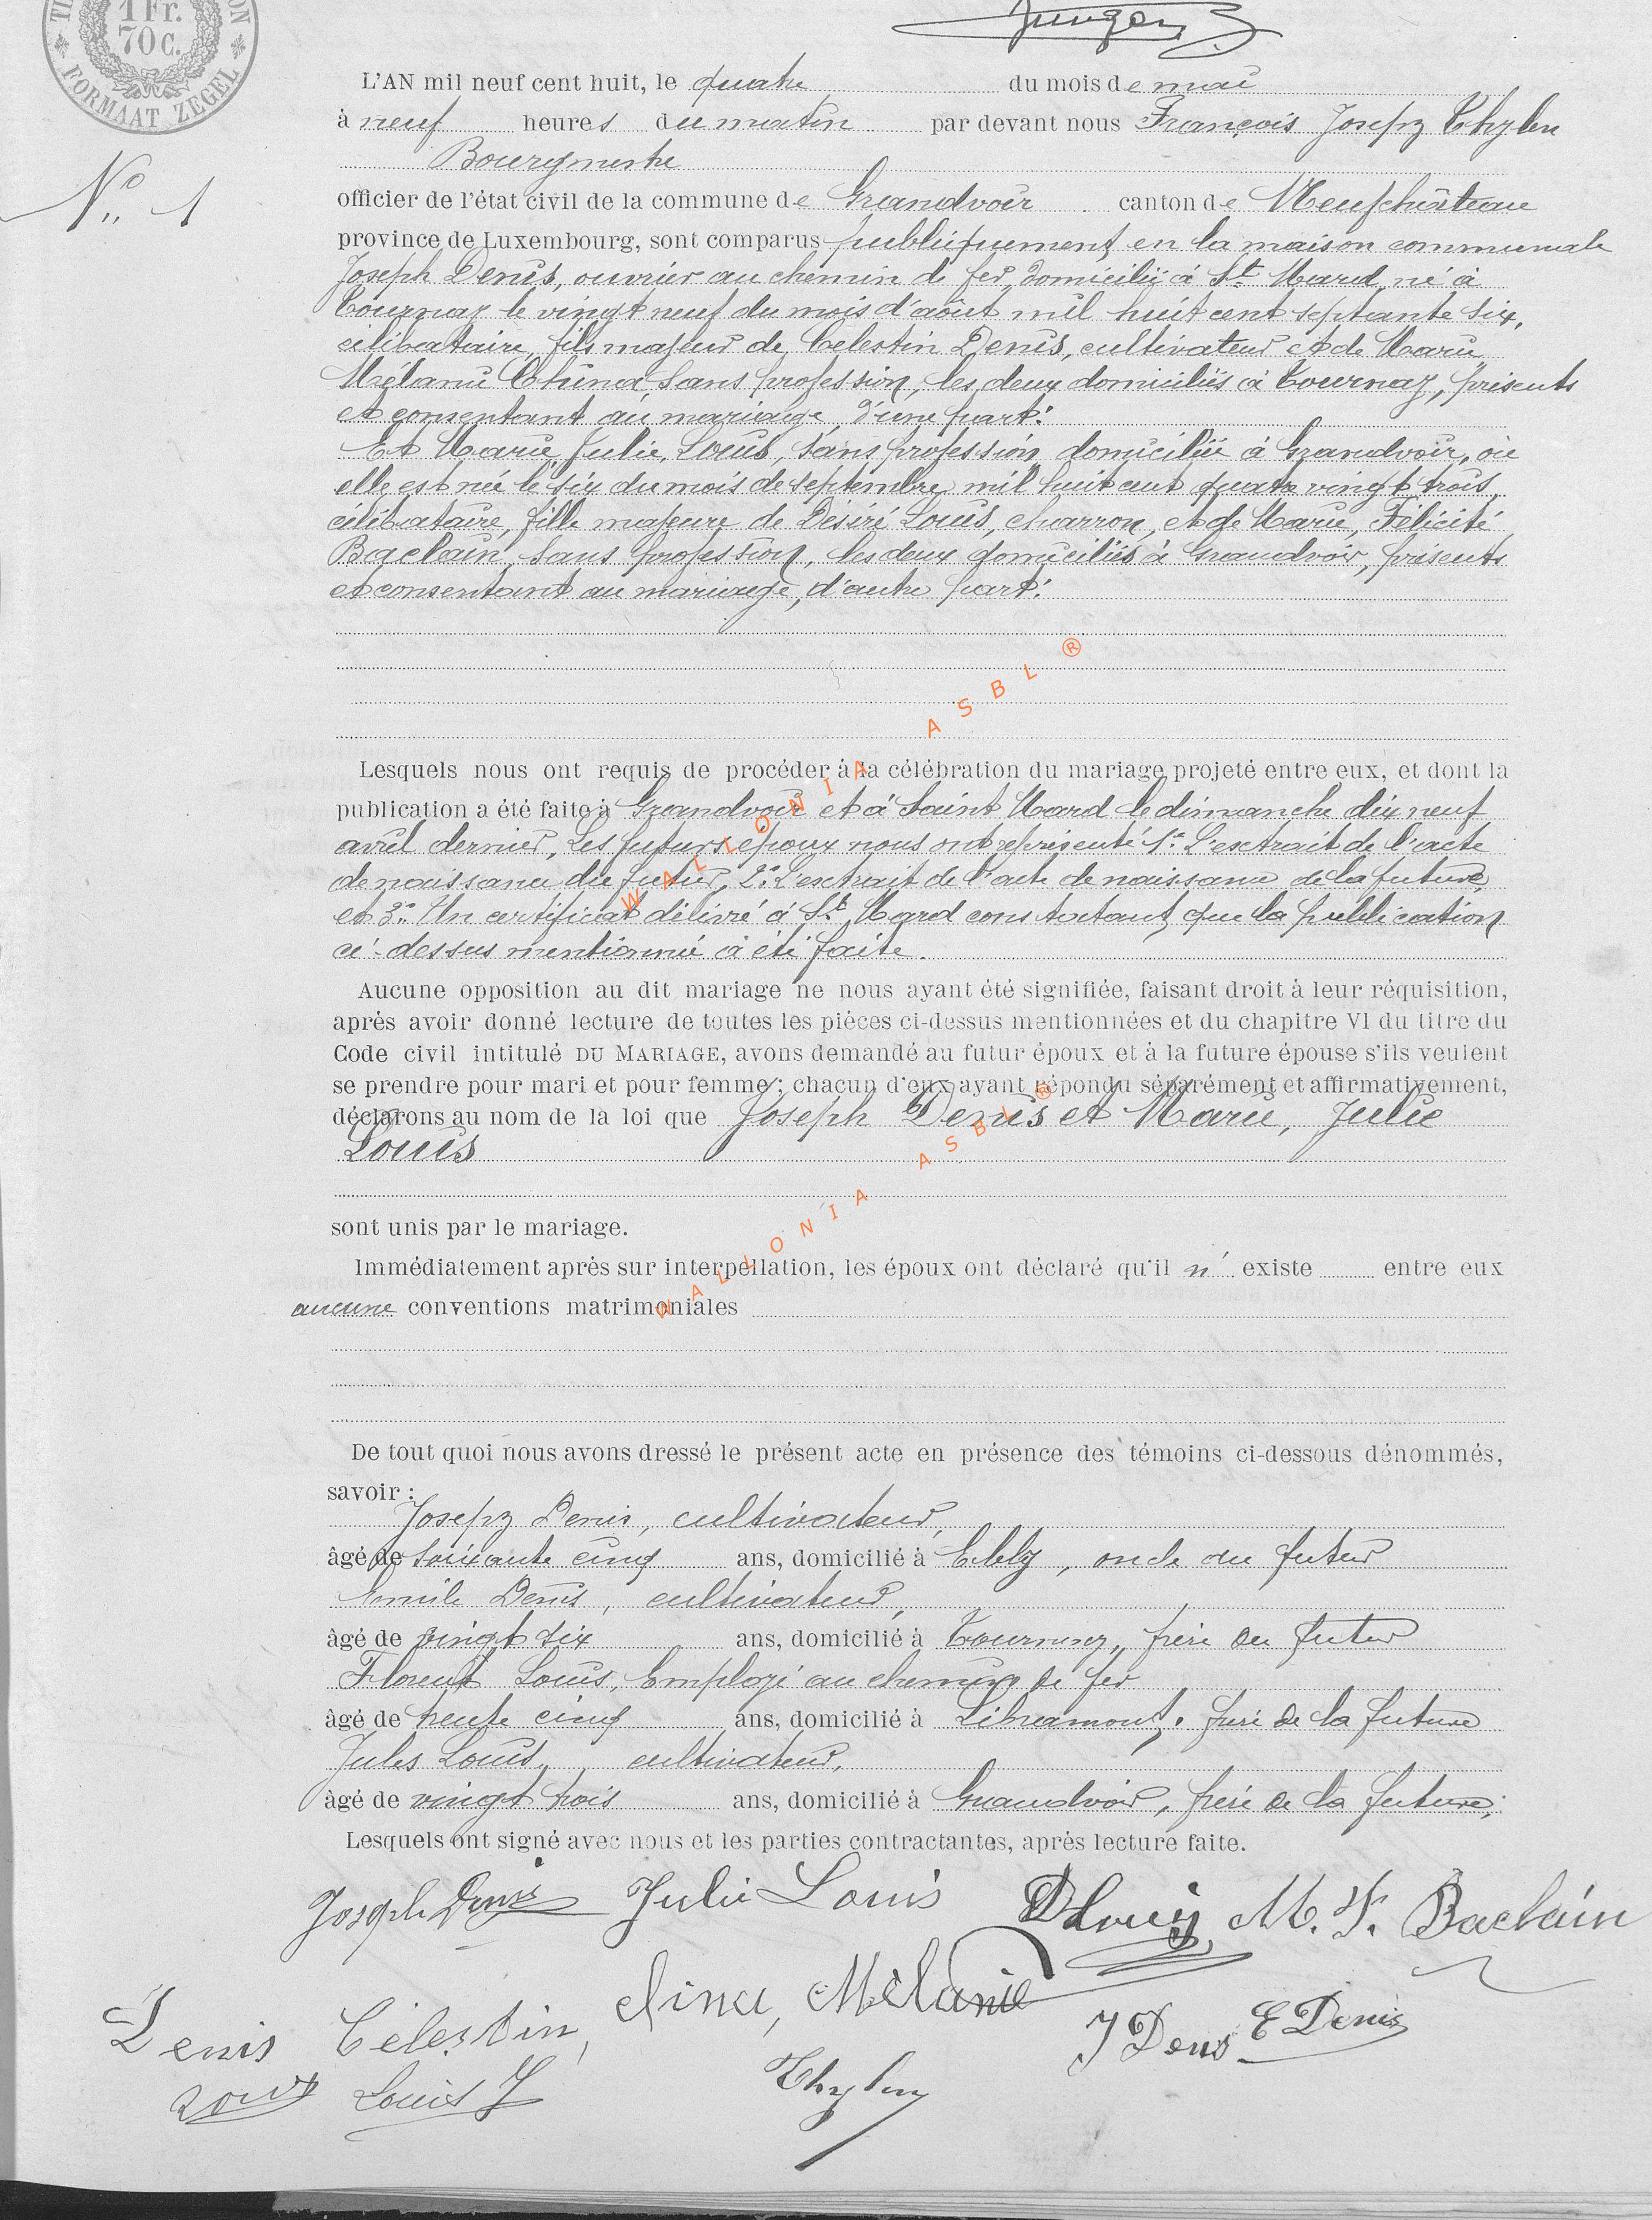 1 Fr.
70 C.
FORMAAT ZEGEL
L'AN mil neuf cent huit, le quatre du mois de mai
à neuf heures du matin par devant nous François Joseph Thylen
Bourgmestre
N° 1
officier de l'état civil de la commune de Grandvoir canton de Neufchâteau
province de Luxembourg, sont comparus publiquement en la maison communale
Joseph Denis, ouvrier au chemin de fer, domicilié à St Mard, né à
Tournay le vingt neuf du mois d'août mil huit cent septante six,
célibataire, fils majeur de Celestin Denis, cultivateur et de Marie
Mélanie sans profession, les deux domiciliés à Tournay, présents
et consentant au mariage, d'une part:
Et Marie, Julie, Louis, sans profession domiciliée à Grandvoir, où
elle est née le six du mois de septembre mil huit cent quatre vingt trois,
célibataire, fille majeure de Désiré Louis, charron, et de Marie, Félicité
Baclain, sans profession, les deux domiciliés à Grandvoir, présents
et consentant au mariage, d'autre part:
Lesquels nous ont requis de procéder à la célébration du mariage projeté entre eux, et dont la
publication a été faite à Grandvoir et à Saint Mard le dimanche dix neuf
avril dernier, Les futurs époux nous ont représenté 1° L'extrait de l'acte
de naissance du futur, 2° L'extrait de l'acte de naissance de la future
et 3° Un certificat délivré à St Mard constatant que la publication
ci-dessus mentionnée à été faite.
Aucune opposition au dit mariage ne nous ayant été signifiée, faisant droit à leur réquisition,
après avoir donné lecture de toutes les pièces ci-dessus mentionnées et du chapitre VI du titre du
Code civil intitulé DU MARIAGE, avons demandé au futur époux et à la future épouse s'ils veulent
se prendre pour mari et pour femme; chacun d'eux ayant répondu séparément et affirmativement,
déclarons au nom de la loi que Joseph Denis et Marie, Julie
Louis
sont unis par le mariage.
Immédiatement après sur interpellation, les époux ont déclaré qu'il n' existe entre eux
aucune conventions matrimoniales
De tout quoi nous avons dressé le présent acte en présence des témoins ci-dessous dénommés,
savoir:
Joseph Denis, cultivateur,
âgé de soixante cinq ans, domicilié à Ebly, oncle du futur
Emile Denis, cultivateur,
âgé de vingt six ans, domicilié à Tournay, frère du futur
Florent Louis, Employé au chemin de fer
âgé de trente cinq ans, domicilié à Libramont, frère de la future
Jules Louis, cultivateur,
âgé de vingt trois ans, domicilié à Grandvoir, frère de la future,
Lesquels ont signé avec nous et les parties contractantes, après lecture faite.
Joseph Denis Julie Louis D Louis M. F. Baclain
Denis Célestin, Mélanie J Denis E Denis
Louis J Thylen
WALLONIA ASBL ®
WALLONIA ASBL ®